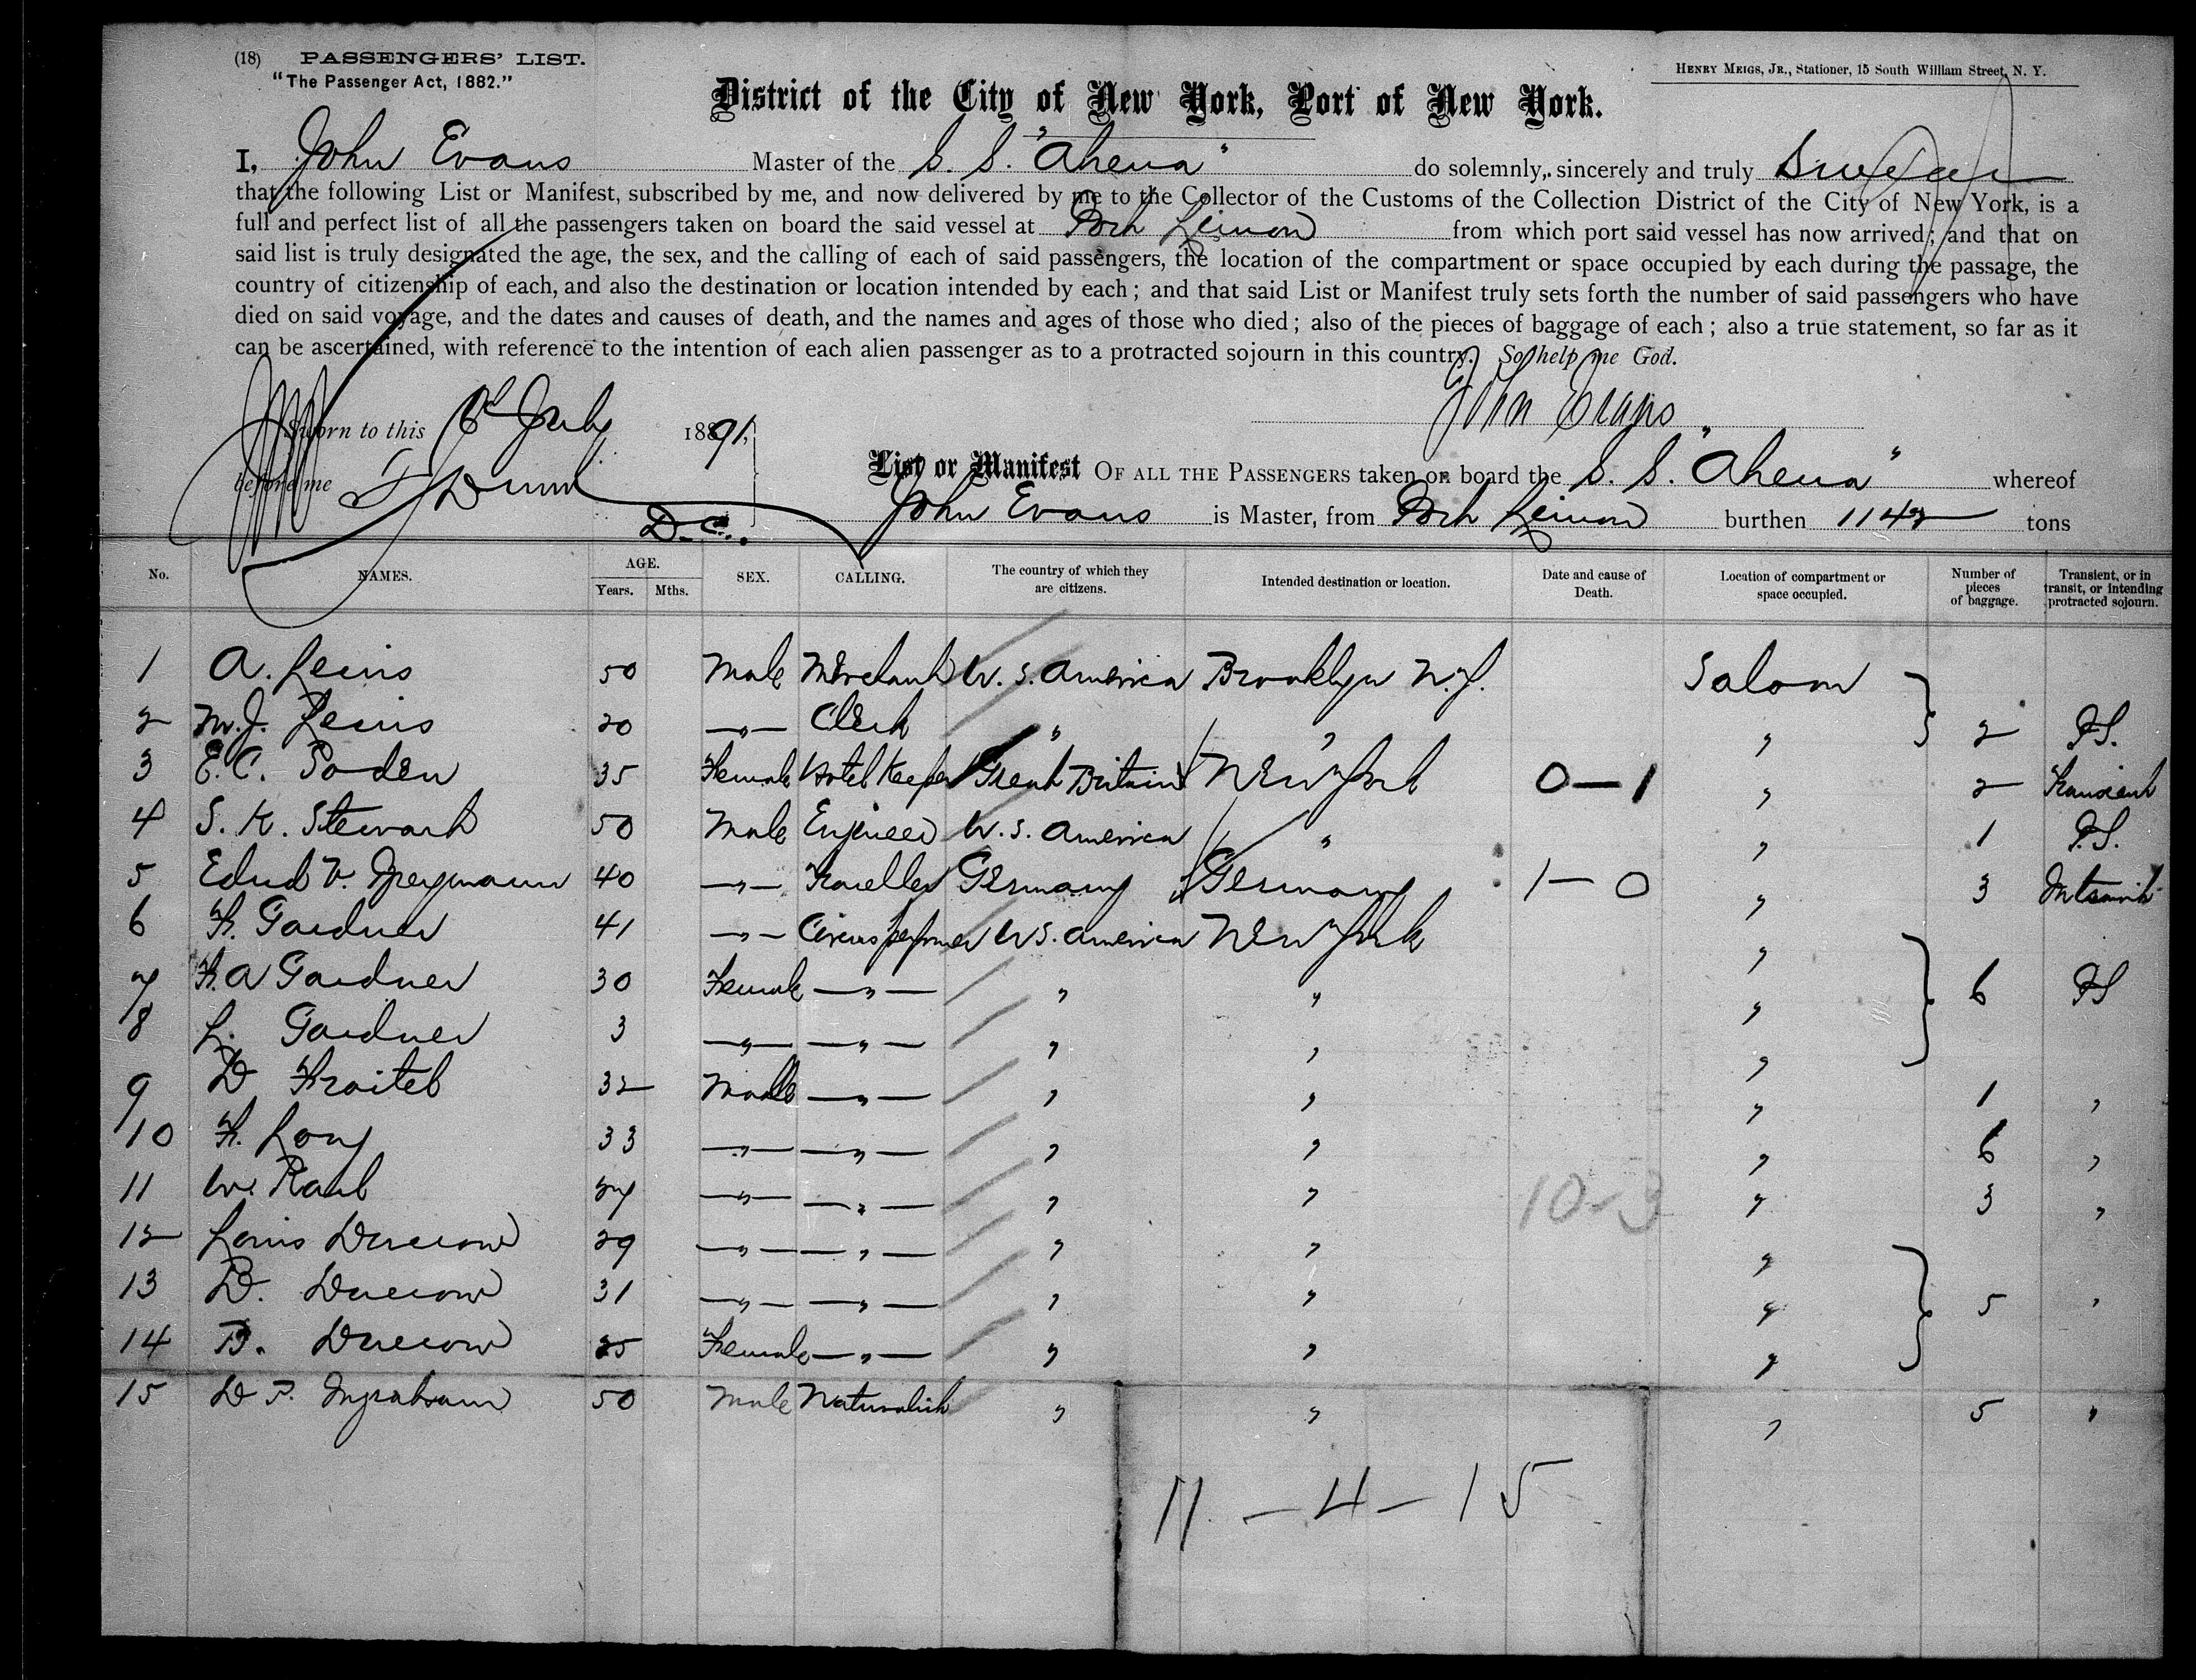 (18) PASSENGERS' LIST.
"The Passenger Act, 1882."
HENRY MEIGS, JR., Stationer, 15 South William Street, N. Y.
District of the City of New York, Port of New York.
I, John Evans Master of the S. S. "Athena" do solemnly, sincerely and truly swear
that the following List or Manifest, subscribed by me, and now delivered by me to the Collector of the Customs of the Collection District of the City of New York, is a
full and perfect list of all the passengers taken on board the said vessel at Port Limon from which port said vessel has now arrived; and that on
said list is truly designated the age, the sex, and the calling of each of said passengers, the location of the compartment or space occupied by each during the passage, the
country of citizenship of each, and also the destination or location intended by each; and that said List or Manifest truly sets forth the number of said passengers who have
died on said voyage, and the dates and causes of death, and the names and ages of those who died; also of the pieces of baggage of each; also a true statement, so far as it
can be ascertained, with reference to the intention of each alien passenger as to a protracted sojourn in this country. So help me God.
John Evans
Sworn to this July 1891,
before me Dunn
D.C.
List or Manifest OF ALL THE PASSENGERS taken on board the S. S. "Athena" whereof
John Evans is Master, from Port Limon burthen 1142 tons
No. NAMES. AGE. Years. Mths. SEX. CALLING. The country of which they are citizens. Intended destination or location. Date and cause of Death. Location of compartment or space occupied. Number of pieces of baggage. Transient, or in transit, or intending protracted sojourn.
1 A. Lewis 50 Male Merchant U. S. America Brooklyn N.Y. Saloon
2 M. J. Lewis 20 —"— Clerk " " " 2 P.S.
3 E. C. Soden 35 Female Hotel Keeper Great Britain New York 0—1 " 2 Transient
4 S. K. Stewart 50 Male Engineer U. S. America " " 1 P.S.
5 Edud V. 40 —"— Traveller Germany Germany 1—0 " 3 Intransit
6 F. Gardner 41 —"— Circus performer U.S. America New York "
7 F. A Gardner 30 Female —"— " " " 6 PS
8 L. Gardner 3 —"— —"— " " "
9 D 32 Male —"— " " " 1 "
10 F. Long 33 —"— —"— " " " 6 "
11 W. Raub 27 —"— —"— " " 10-3 " 3 "
12 Louis Ducrow 29 —"— —"— " " "
13 D. Ducrow 31 —"— —"— " " " 5 "
14 B. Ducrow 25 Female —"— " " "
15 D P. Ingraham 50 Male Naturalist " " " 5 "
11 — 4 — 15